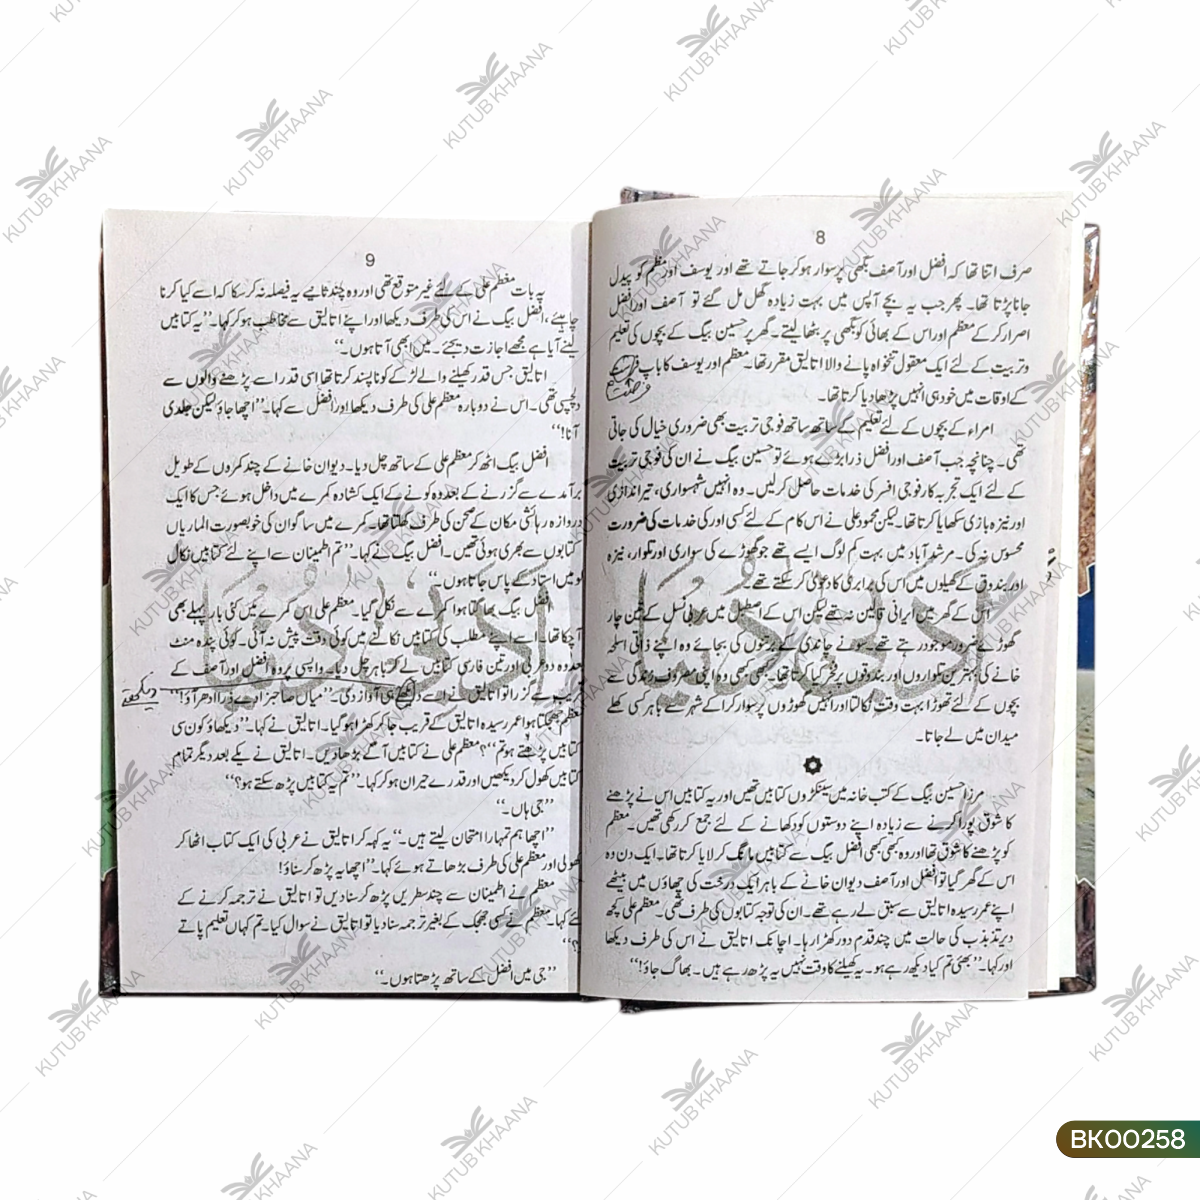 8
صرف اتنا تھا کہ افضل اور آصف بگھی پر سوار ہو کر جاتے تھے اور یوسف اور معظم کو پیدل
جانا پڑتا تھا۔ پھر جب یہ بچے آپس میں بہت زیادہ گھل مل گئے تو آصف اور افضل
اصرار کر کے معظم اور اس کے بھائی کو بگھی پر بٹھا لیتے۔ گھر پر حسین بیگ کے بچوں کی تعلیم
و تربیت کے لئے ایک معقول تنخواہ پانے والا اتالیق مقرر تھا۔ معظم اور یوسف کا باپ فرصت
کے اوقات میں خود ہی انہیں پڑھا دیا کرتا تھا۔
امراء کے بچوں کے لئے تعلیم کے ساتھ ساتھ فوجی تربیت بھی ضروری خیال کی جاتی
تھی۔ چنانچہ جب آصف اور افضل ذرا بڑے ہوئے تو حسین بیگ نے ان کی فوجی تربیت
کے لئے ایک تجربہ کار فوجی افسر کی خدمات حاصل کر لیں۔ وہ انہیں شہسواری، تیر اندازی
اور نیزہ بازی سکھایا کرتا تھا۔ لیکن محمود علی نے اس کام کے لئے کسی اور کی خدمات کی ضرورت
محسوس نہ کی۔ مرشد آباد میں بہت کم لوگ ایسے تھے جو گھوڑے کی سواری اور تلوار، نیزہ
اور بندوق کے کھیلوں میں اس کی برابری کا دعویٰ کر سکتے تھے۔
اس کے گھر میں ایرانی قالین نہ تھے لیکن اس کے اصطبل میں عربی نسل کے تین چار
گھوڑے ضرور موجود رہتے تھے۔ سونے چاندی کے برتنوں کی بجائے وہ اپنے ذاتی اسلحہ
خانے کی بہترین تلواروں اور بندوقوں پر فخر کیا کرتا تھا۔ کبھی کبھی وہ اپنی مصروف زندگی سے
بچوں کے لئے تھوڑا بہت وقت نکالتا اور انہیں گھوڑوں پر سوار کرا کے شہر سے باہر کسی کھلے
میدان میں لے جاتا۔
مرزا حسین بیگ کے کتب خانہ میں سینکڑوں کتابیں تھیں اور یہ کتابیں اس نے پڑھنے
کا شوق پورا کرنے سے زیادہ اپنے دوستوں کو دکھانے کے لئے جمع کر رکھی تھیں۔ معظم
کو پڑھنے کا شوق تھا اور وہ کبھی کبھی افضل بیگ سے کتابیں مانگ کر لایا کرتا تھا۔ ایک دن وہ
اس کے گھر گیا تو افضل اور آصف دیوان خانے کے باہر ایک درخت کی چھاؤں میں بیٹھے
اپنے عمر رسیدہ اتالیق سے سبق لے رہے تھے۔ ان کی توجہ کتابوں کی طرف تھی۔ معظم علی کچھ
دیر تذبذب کی حالت میں چند قدم دور کھڑا رہا۔ اچانک اتالیق نے اس کی طرف دیکھا
اور کہا۔ ”بھئی تم کیا دیکھ رہے ہو۔ یہ کھیلنے کا وقت نہیں یہ پڑھ رہے ہیں۔ بھاگ جاؤ!“
9
یہ بات معظم علی کے لئے غیر متوقع تھی اور وہ چند ثانیے یہ فیصلہ نہ کر سکا کہ اسے کیا کرنا
چاہئے، افضل بیگ نے اس کی طرف دیکھا اور اپنے اتالیق سے مخاطب ہو کر کہا۔ ”یہ کتابیں
لینے آیا ہے مجھے اجازت دیجئے۔ میں ابھی آتا ہوں۔“
اتالیق جس قدر کھیلنے والے لڑکے کو ناپسند کرتا تھا اسی قدر اسے پڑھنے والوں سے
دلچسپی تھی۔ اس نے دوبارہ معظم علی کی طرف دیکھا اور افضل سے کہا۔ ”اچھا جاؤ لیکن جلدی
آنا!“
افضل بیگ اٹھ کر معظم علی کے ساتھ چل دیا۔ دیوان خانے کے چند کمروں کے طویل
برآمدے سے گزرنے کے بعد وہ کونے کے ایک کشادہ کمرے میں داخل ہوئے جس کا ایک
دروازہ رہائشی مکان کے صحن کی طرف کھلتا تھا۔ کمرے میں ساگوان کی خوبصورت الماریاں
کتابوں سے بھری ہوئی تھیں۔ افضل بیگ نے کہا۔ ”تم اطمینان سے اپنے لئے کتابیں نکال
لو میں استاد کے پاس جاتا ہوں۔“
افضل بیگ بھاگتا ہوا کمرے سے نکل گیا۔ معظم علی اس کمرے میں کئی بار پہلے بھی
آ چکا تھا۔ اسے اپنے مطلب کی کتابیں نکالنے میں کوئی دقت پیش نہ آئی۔ کوئی پندرہ منٹ
بعد وہ دو عربی اور تین فارسی کتابیں لے کر باہر چل دیا۔ واپسی پر وہ افضل اور آصف کے
قریب سے گزرا تو اتالیق نے اسے دیکھتے ہی آواز دی۔ ”میاں صاحبزادے ذرا ادھر آؤ!“
دیکھتے
معظم جھجکتا ہوا عمر رسیدہ اتالیق کے قریب جا کر کھڑا ہو گیا۔ اتالیق نے کہا۔ ”دیکھاؤ کون سی
کتابیں پڑھتے ہو تم“؟ معظم علی نے کتابیں آگے بڑھا دیں۔ اتالیق نے یکے بعد دیگر تمام
کتابیں کھول کر دیکھیں اور قدرے حیران ہو کر کہا۔ ”تم یہ کتابیں پڑھ سکتے ہو؟“
”جی ہاں۔“
”اچھا ہم تمہارا امتحان لیتے ہیں۔“ یہ کہہ کر اتالیق نے عربی کی ایک کتاب اٹھا کر
کھولی اور معظم علی کی طرف بڑھاتے ہوئے کہا۔ ”اچھا یہ پڑھ کر سناؤ!
معظم نے اطمینان سے چند سطریں پڑھ کر سنا دیں تو اتالیق نے ترجمہ کرنے کے
لئے کہا۔ معظم نے کسی جھجک کے بغیر ترجمہ سنا دیا تو اتالیق نے سوال کیا۔ تم کہاں تعلیم پاتے
”جی میں افضل کے ساتھ پڑھتا ہوں۔“
ادبی دنیا
KUTUB KHAANA
BK00258